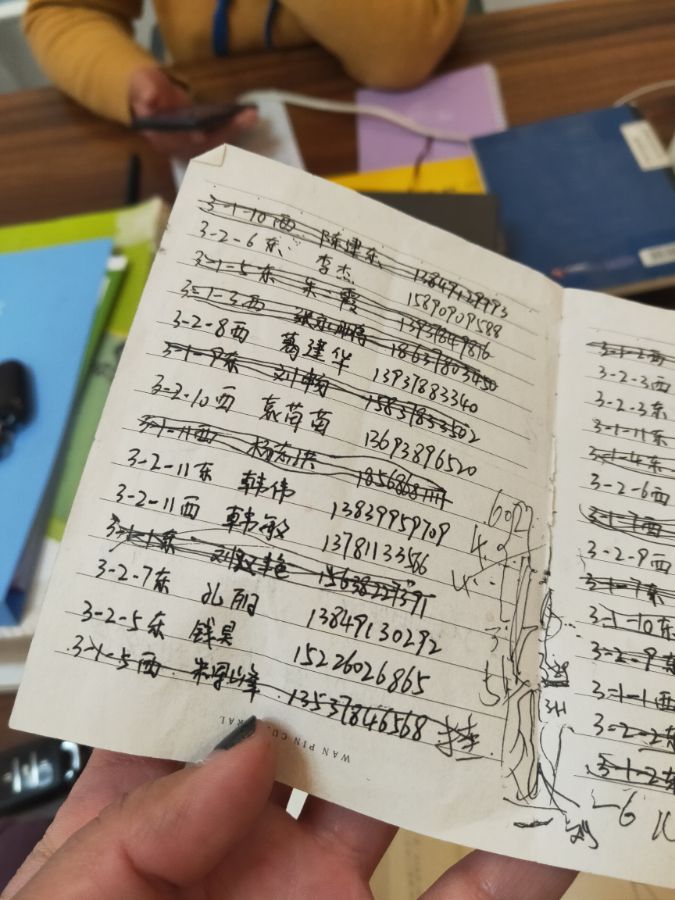 3-1-10西 陈建东 13849129993
3-2-6东 李杰 15890909588
3-1-5东 朱二霞 13937849876
3-1-3西 18637803450
3-2-8西 葛建华 13937883340
3-1-9东 刘畅 15837833502
3-2-10西 袁苗苗 13693896520
3-1-11西 杨志洪
3-2-11东 韩伟 13839959709
3-2-11西 韩敏 13781133566
3-1-1东 15638227391
3-2-7东 孔丽 13849130292
3-2-5东 钱昊 15226026865
3-1-5西 13537846568
WAN PIN CU
3-1-3西
3-2-3西
3-2-3东
3-1-11东
3-1-4东
3-2-6西
3-1-7西
3-2-9西
3-1-7东
3-1-10东
3-2-9东
3-1-1西
3-2-2东
3-1-2东